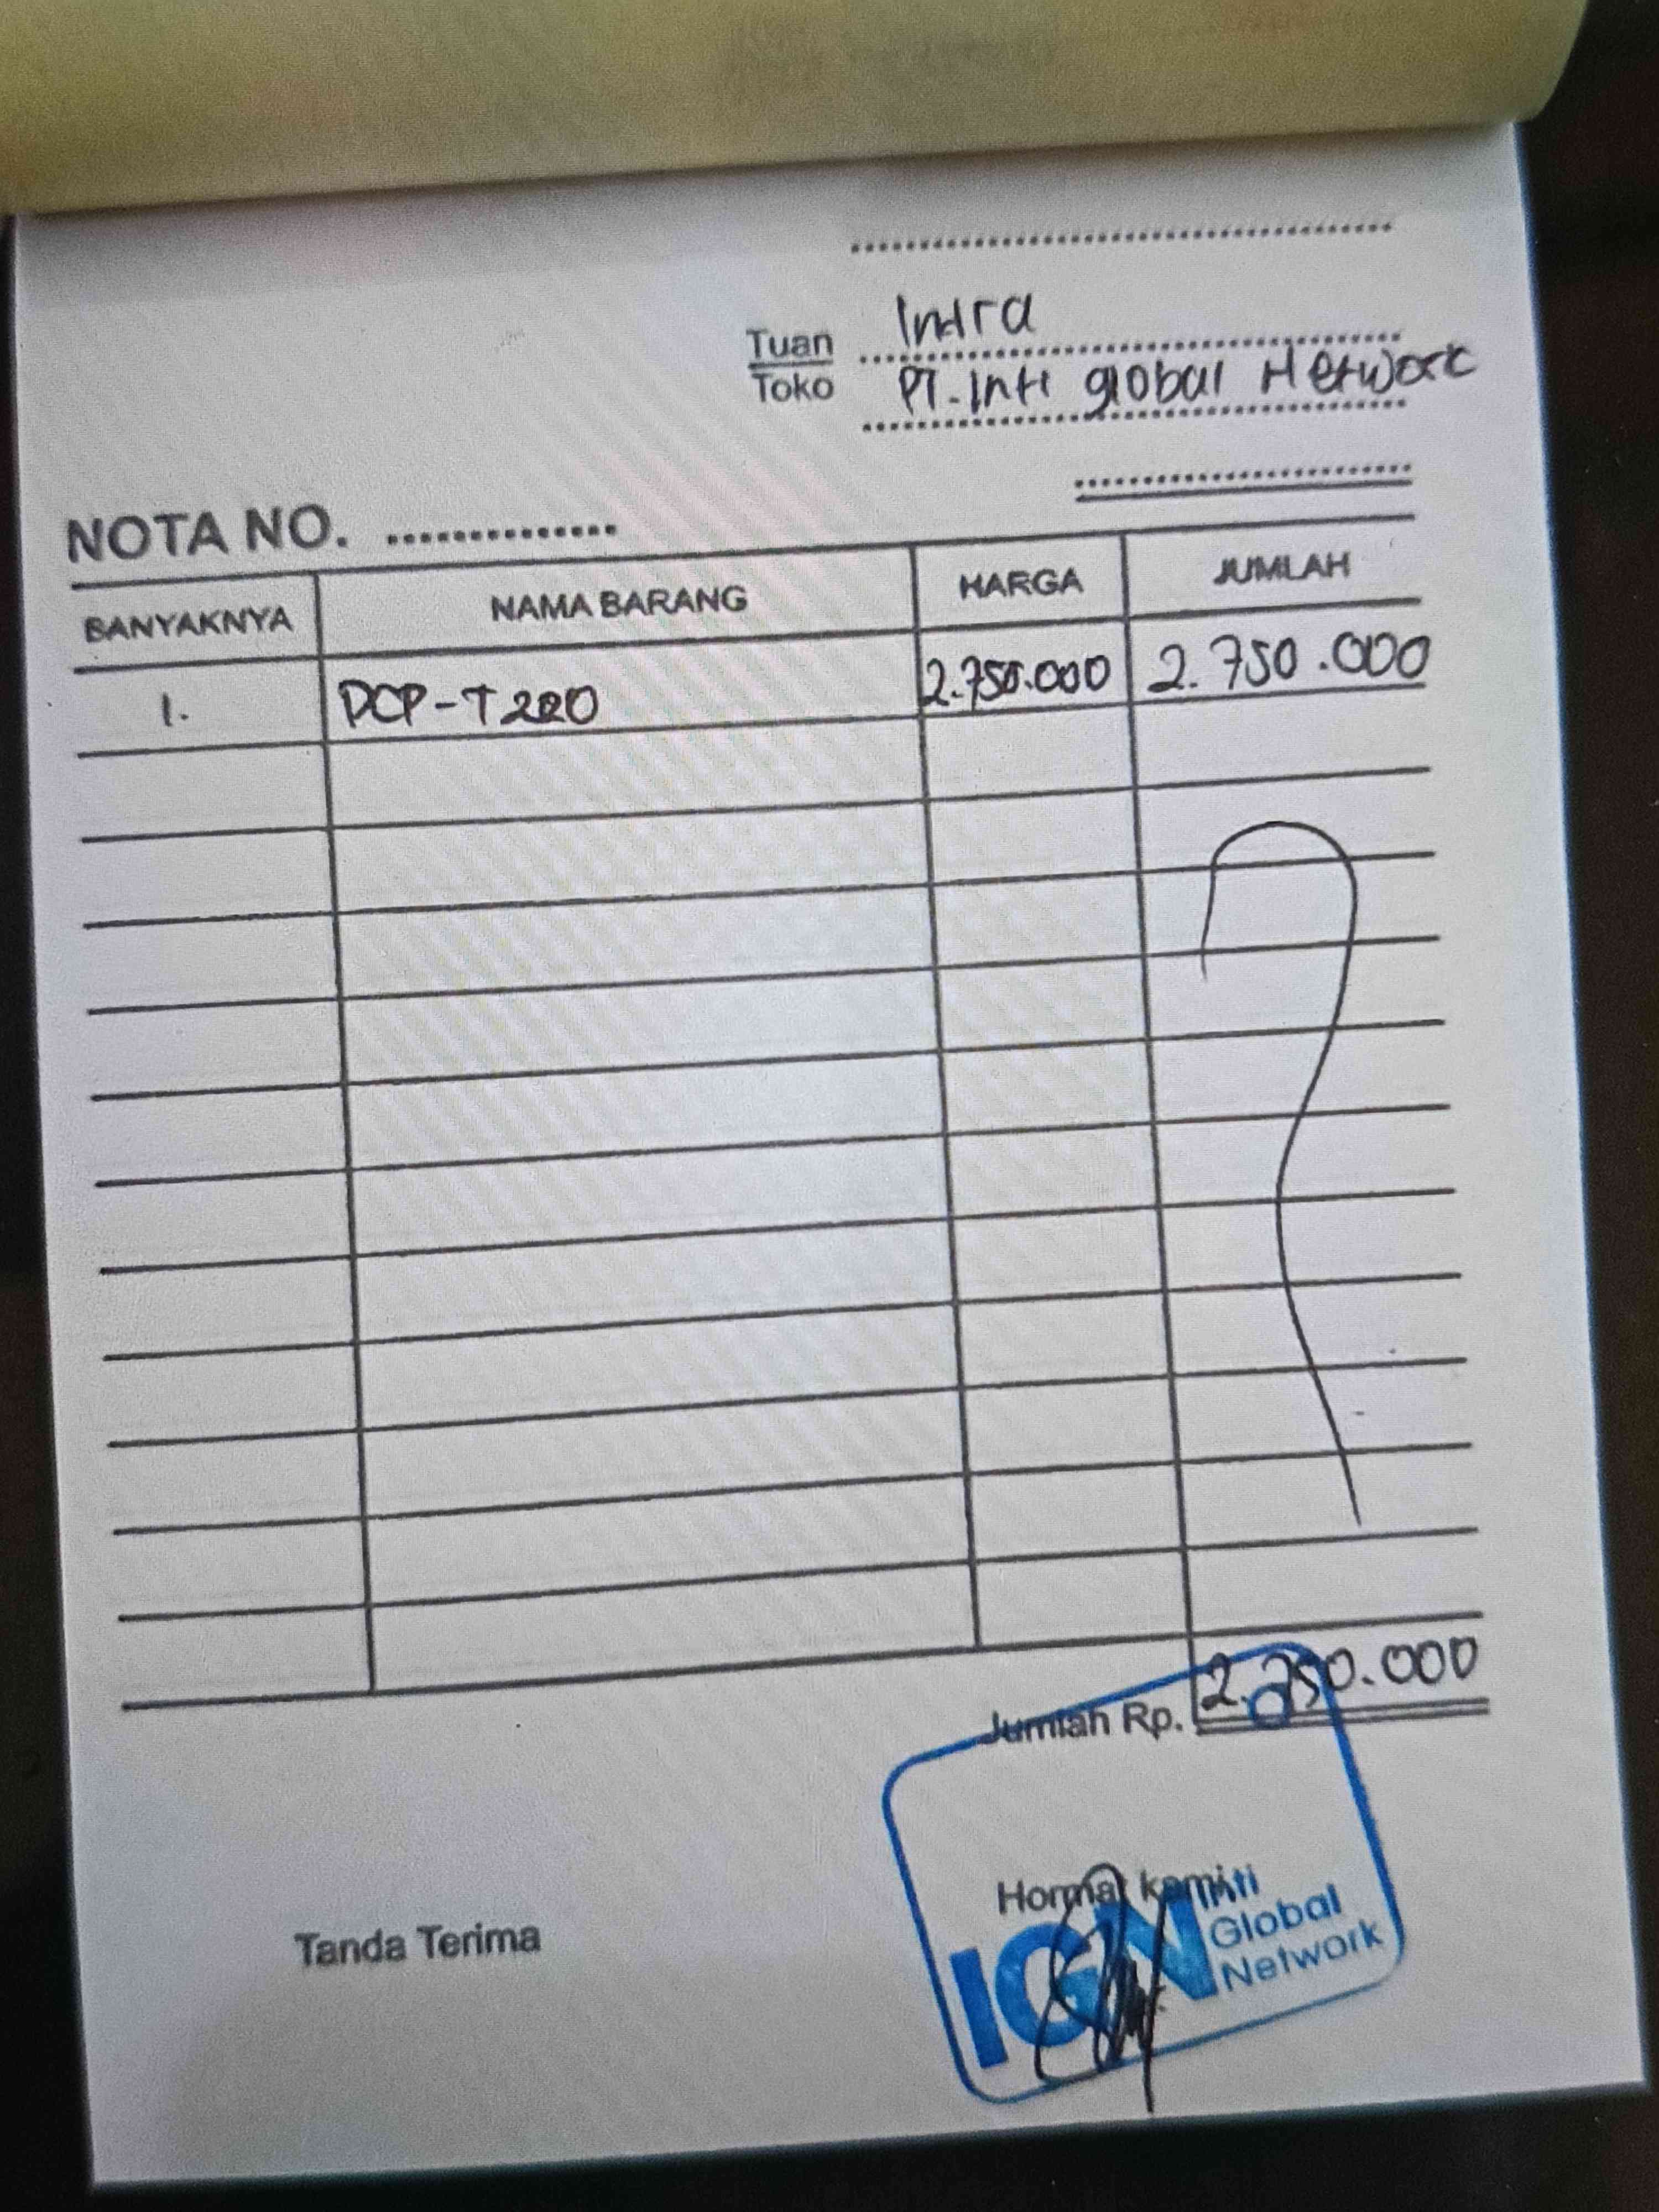 Tuan
Toko
Indra
PT. Inti global Network
NOTA NO. ...............
BANYAKNYA NAMA BARANG HARGA JUMLAH
1. DCP-T220 2.750.000 2.750.000
Jumlah Rp. 2.750.000
Tanda Terima
Hormat kami,
IGN
Inti
Global
Network